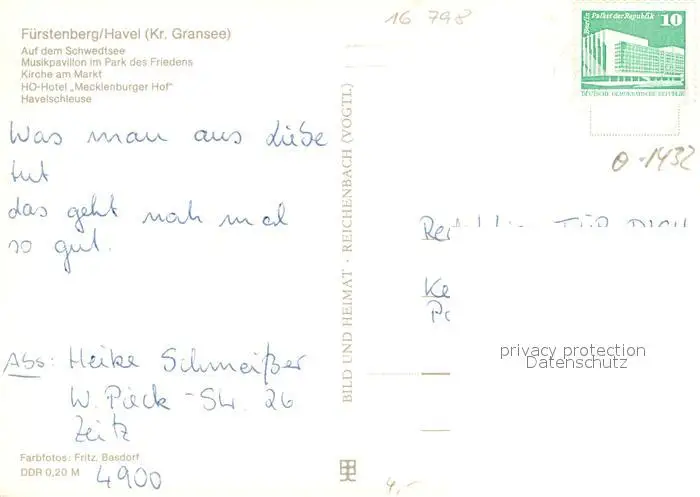 Fürstenberg/Havel (Kr. Gransee)
Auf dem Schwedtsee
Musikpavillon im Park des Friedens
Kirche am Markt
HO-Hotel „Mecklenburger Hof"
Havelschleuse
16 798
Berlin, Palast der Republik
10
DEUTSCHE DEMOKRATISCHE REPUBLIK
1432
Was man aus Liebe
tut
das geht noch mal
so gut.
FÜR DICH
privacy protection
Datenschutz
Abs: Heike Schmeißer
W. Pieck-Str. 26
Zeitz
4900
Farbfotos: Fritz, Basdorf
DDR 0,20 M
BILD UND HEIMAT · REICHENBACH (VOGTL)
4,-